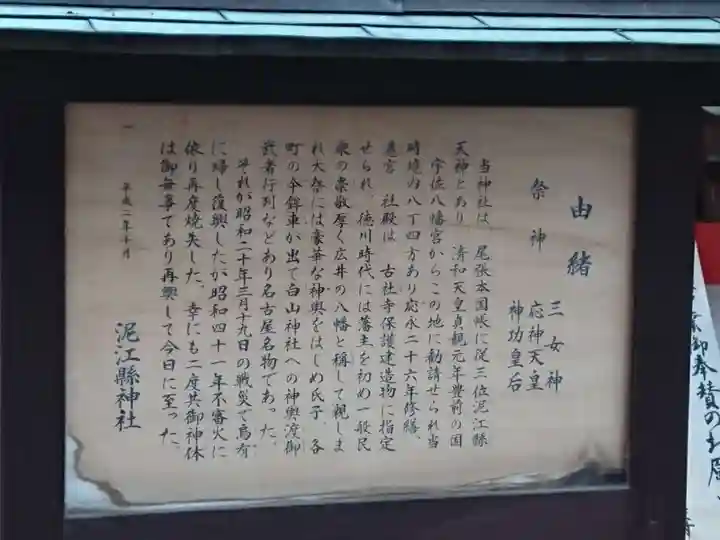 由緒
祭神
三女神
応神天皇
神功皇后
当神社は 尾張本国帳に従三位泥江縣
天神とあり 清和天皇貞観元年豊前の国
宇佐八幡宮からこの地に勧請せられ当
時境内八丁四方あり応永二十六年修繕、
遷宮 社殿は 古社寺保護建造物に指定
せられ、徳川時代には藩主を初め一般民
衆の崇敬厚く広井の八幡と称して親しま
れ大祭には豪華な神輿をはじめ氏子、各
町の傘鉾車が出て白山神社への神輿渡御
武者行列などあり名古屋名物であった。
それが昭和二十年三月十九日の戦災で烏有
に帰し復興したが昭和四十一年不審火に
依り再度焼失した、幸にも二度共御神体
は御無事であり再興して今日に至った、
平成二年十月
泥江縣神社
御奉賛のお願